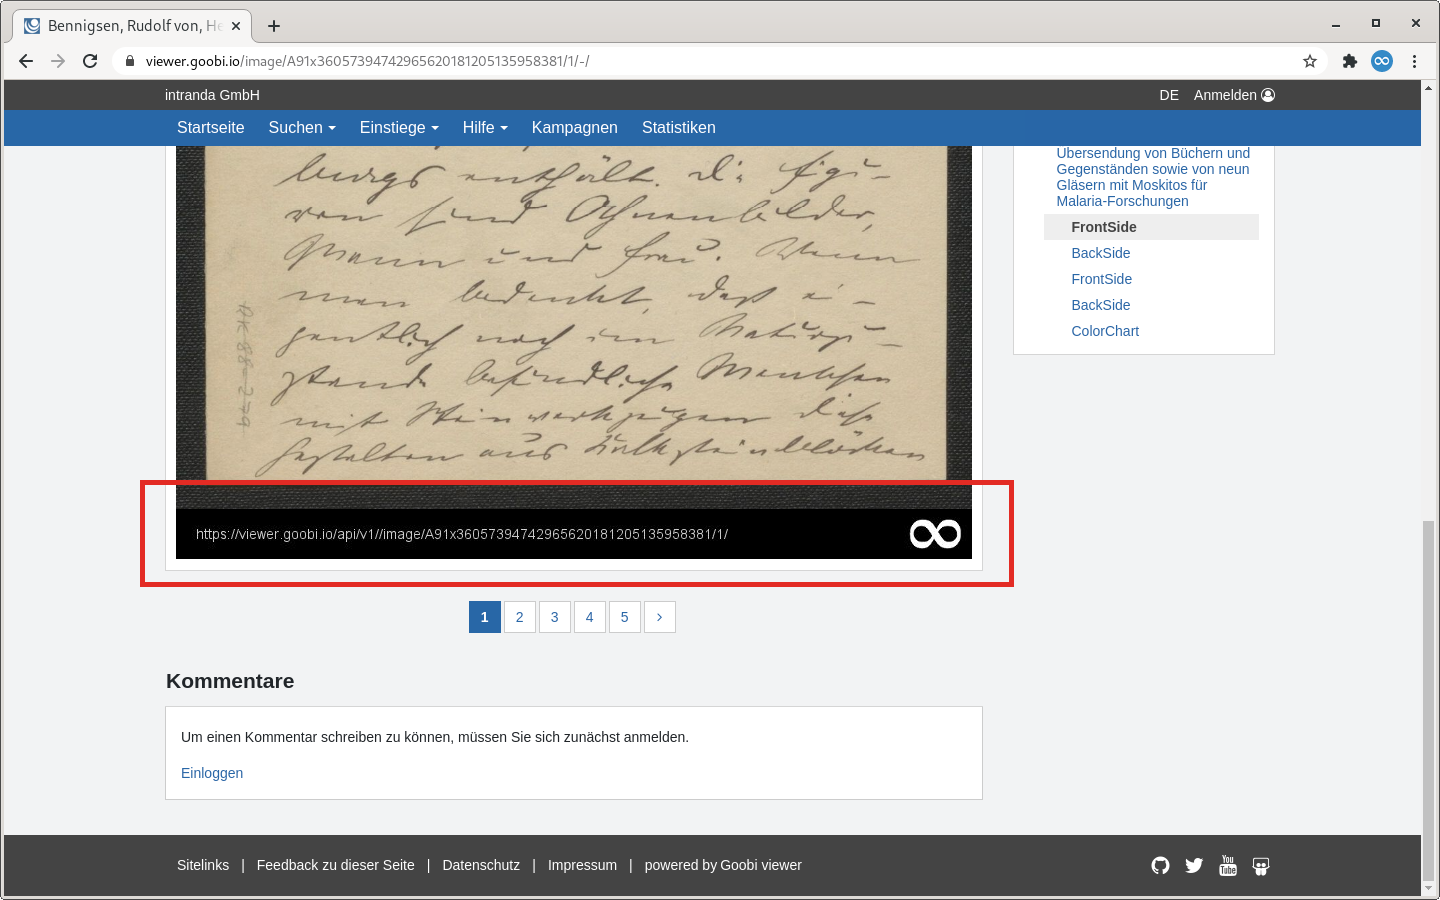 Bennigsen, Rudolf von, He
viewer.goobi.io/image/A91x36057394742965620181205135958381/1/-/
intranda GmbH
DE Anmelden
Startseite Suchen Einstiege Hilfe Kampagnen Statistiken
burgs enthält. Die Figu-
ren sind Ahnenbilder,
Mann und Frau. Wenn
man bedenkt, daß ei-
gentlich noch im Naturzu-
stande befindliche Menschen
mit Steinwerkzeugen diese
Gestalten aus Kalksteinblöcken
AK 88-279
https://viewer.goobi.io/api/v1//image/A91x36057394742965620181205135958381/1/
Übersendung von Büchern und
Gegenständen sowie von neun
Gläsern mit Moskitos für
Malaria-Forschungen
FrontSide
BackSide
FrontSide
BackSide
ColorChart
1 2 3 4 5
Kommentare
Um einen Kommentar schreiben zu können, müssen Sie sich zunächst anmelden.
Einloggen
Sitelinks | Feedback zu dieser Seite | Datenschutz | Impressum | powered by Goobi viewer
You
Tube